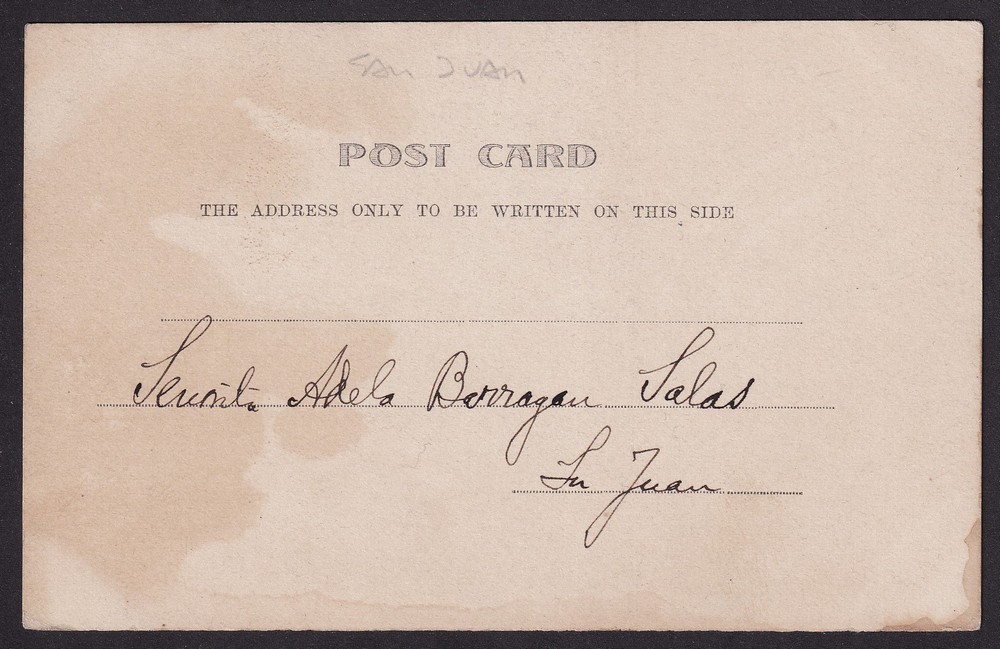 San Juan
POST CARD
THE ADDRESS ONLY TO BE WRITTEN ON THIS SIDE
Senorita Adela Barragan Salas
Sn Juan